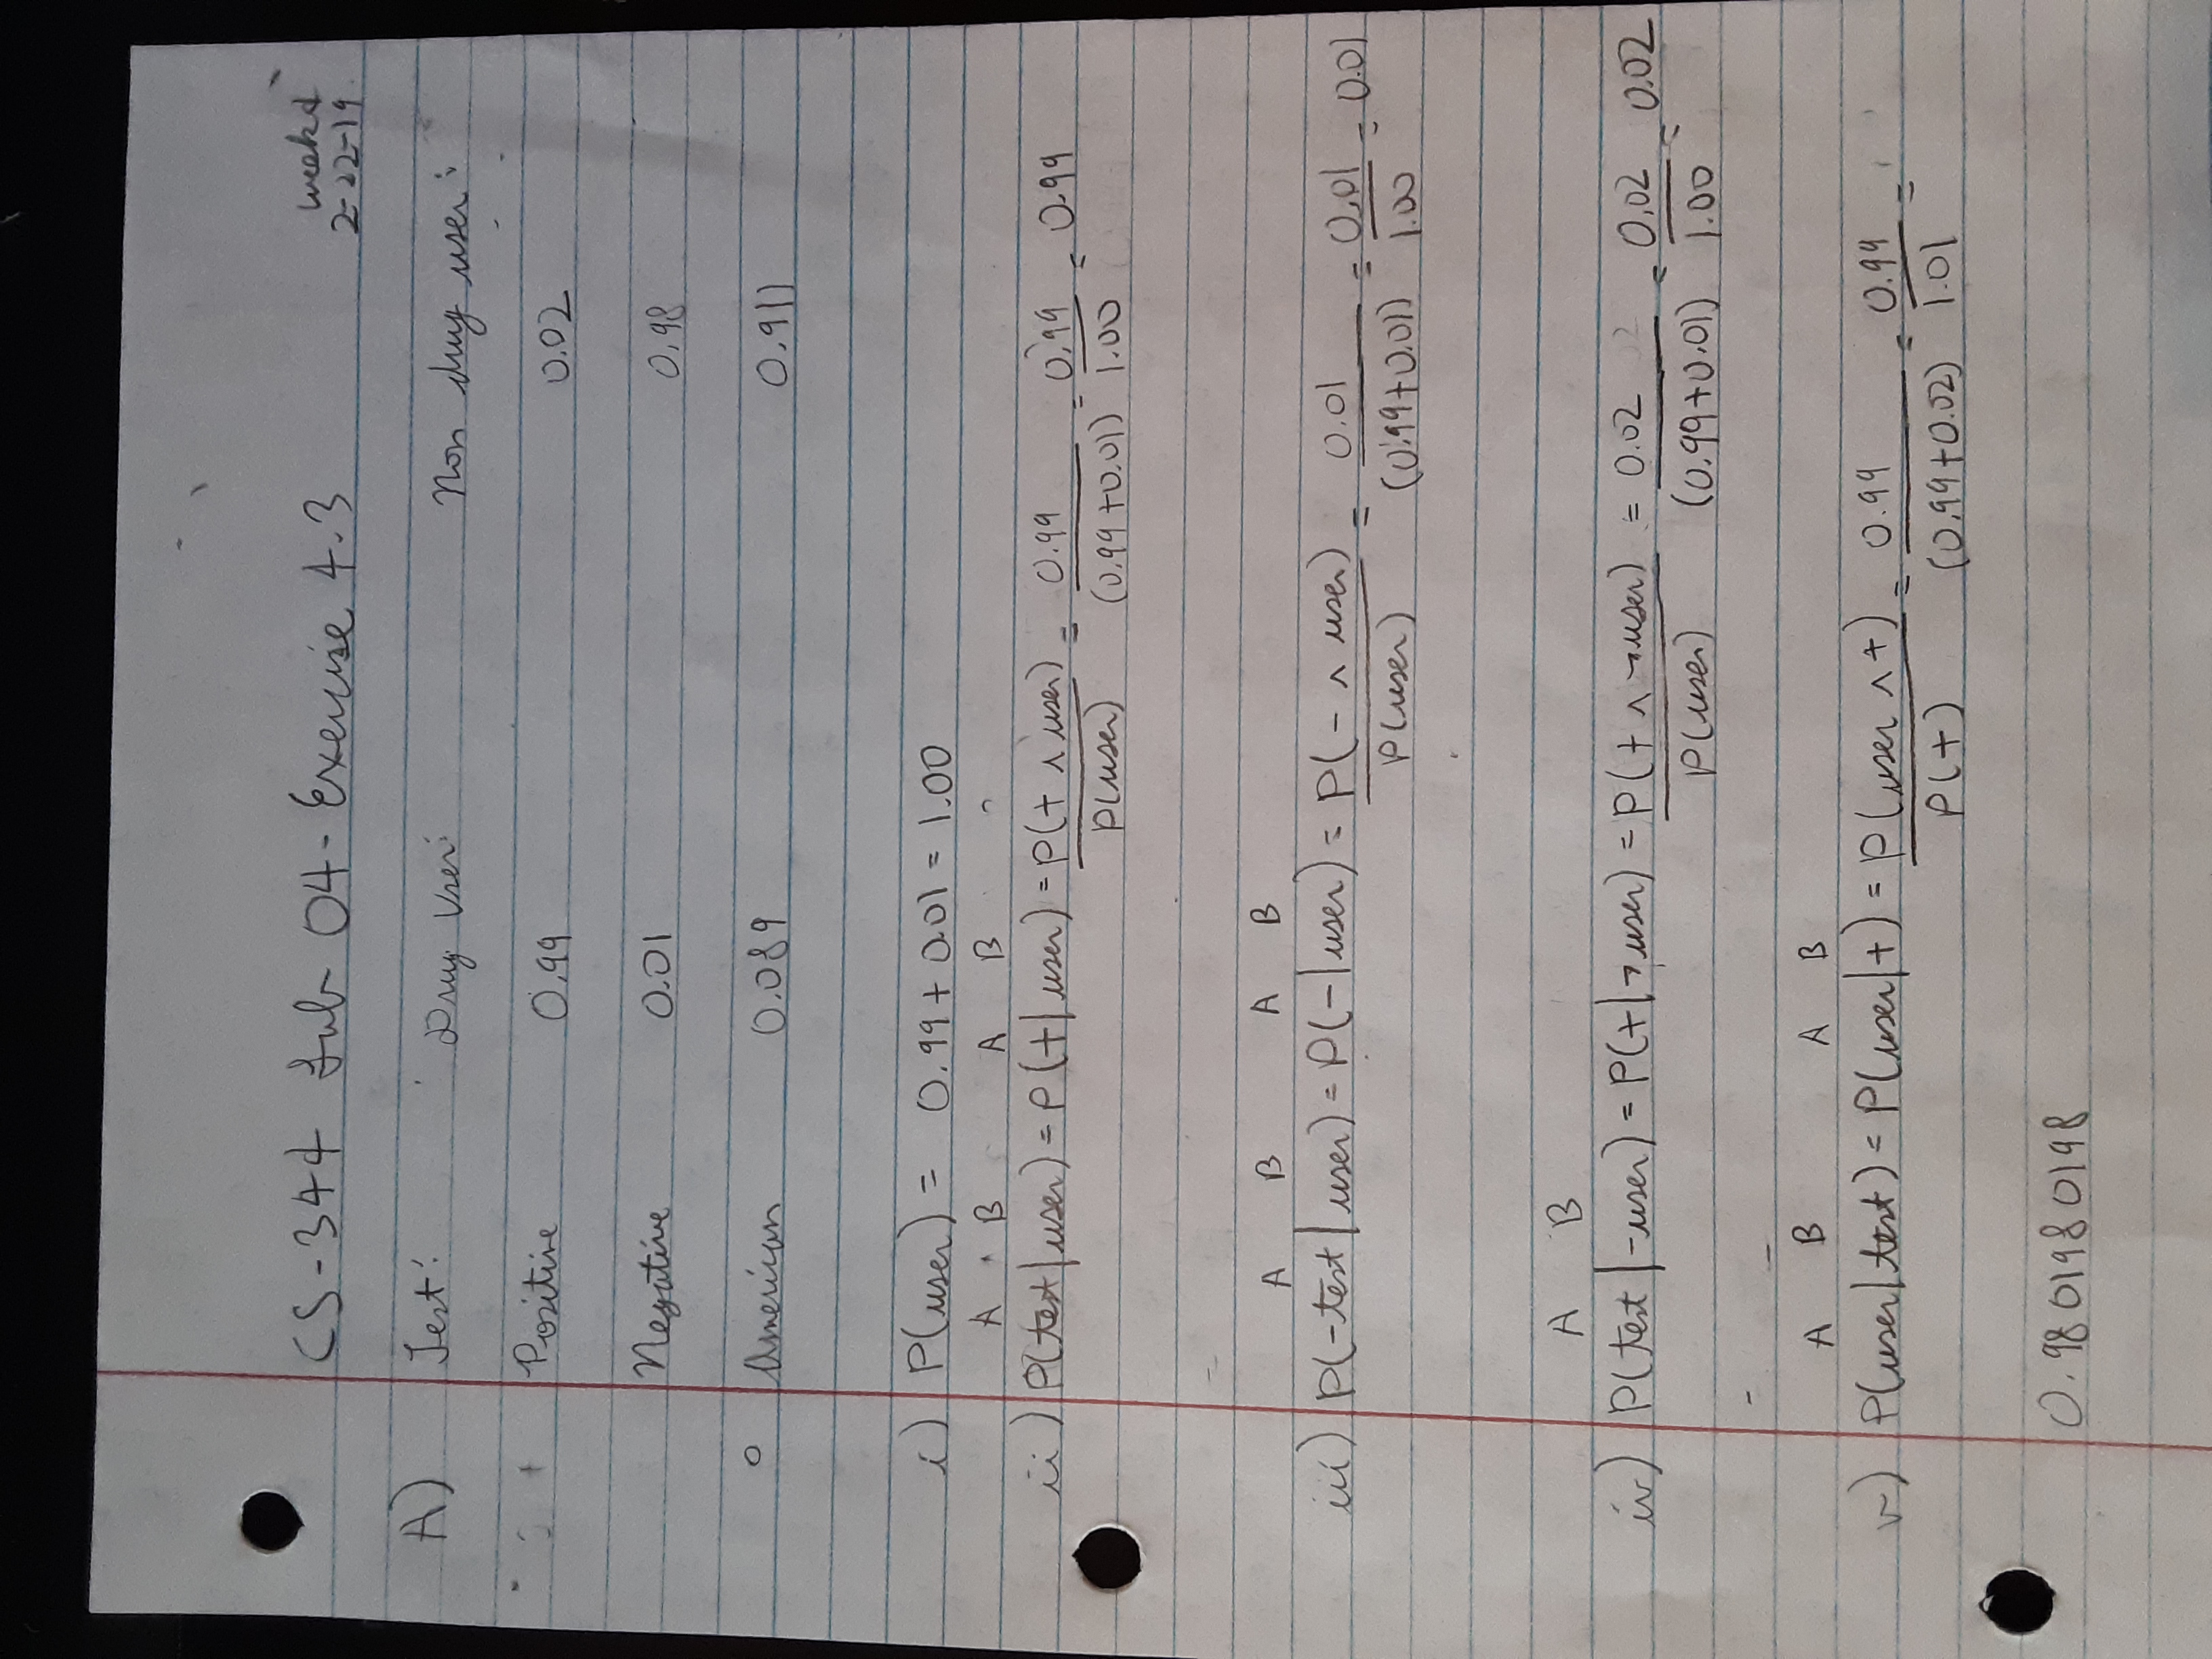 CS-344 Lab 04 - Exercise 4.3
week 4
2-22-19
A) Test: Drug User: Non drug user:
Positive 0.99 0.02
Negative 0.01 0.98
American 0.089 0.911
i) P(user) = 0.99 + 0.01 = 1.00
A B A B
ii) P(test|user) = P(+|user) = P(+ ∧ user) / P(user) = 0.99 / (0.99+0.01) = 0.99 / 1.00 = 0.99
A B A B
iii) P(-test|user) = P(-|user) = P(- ∧ user) / P(user) = 0.01 / (0.99+0.01) = 0.01 / 1.00 = 0.01
A B
iv) P(test|-user) = P(+|¬user) = P(+ ∧ ¬user) / P(user) = 0.02 / (0.99+0.01) = 0.02 / 1.00 = 0.02
A B A B
v) P(user|test) = P(user|+) = P(user ∧ +) / P(+) = 0.99 / (0.99+0.02) = 0.99 / 1.01 =
0.9801980198